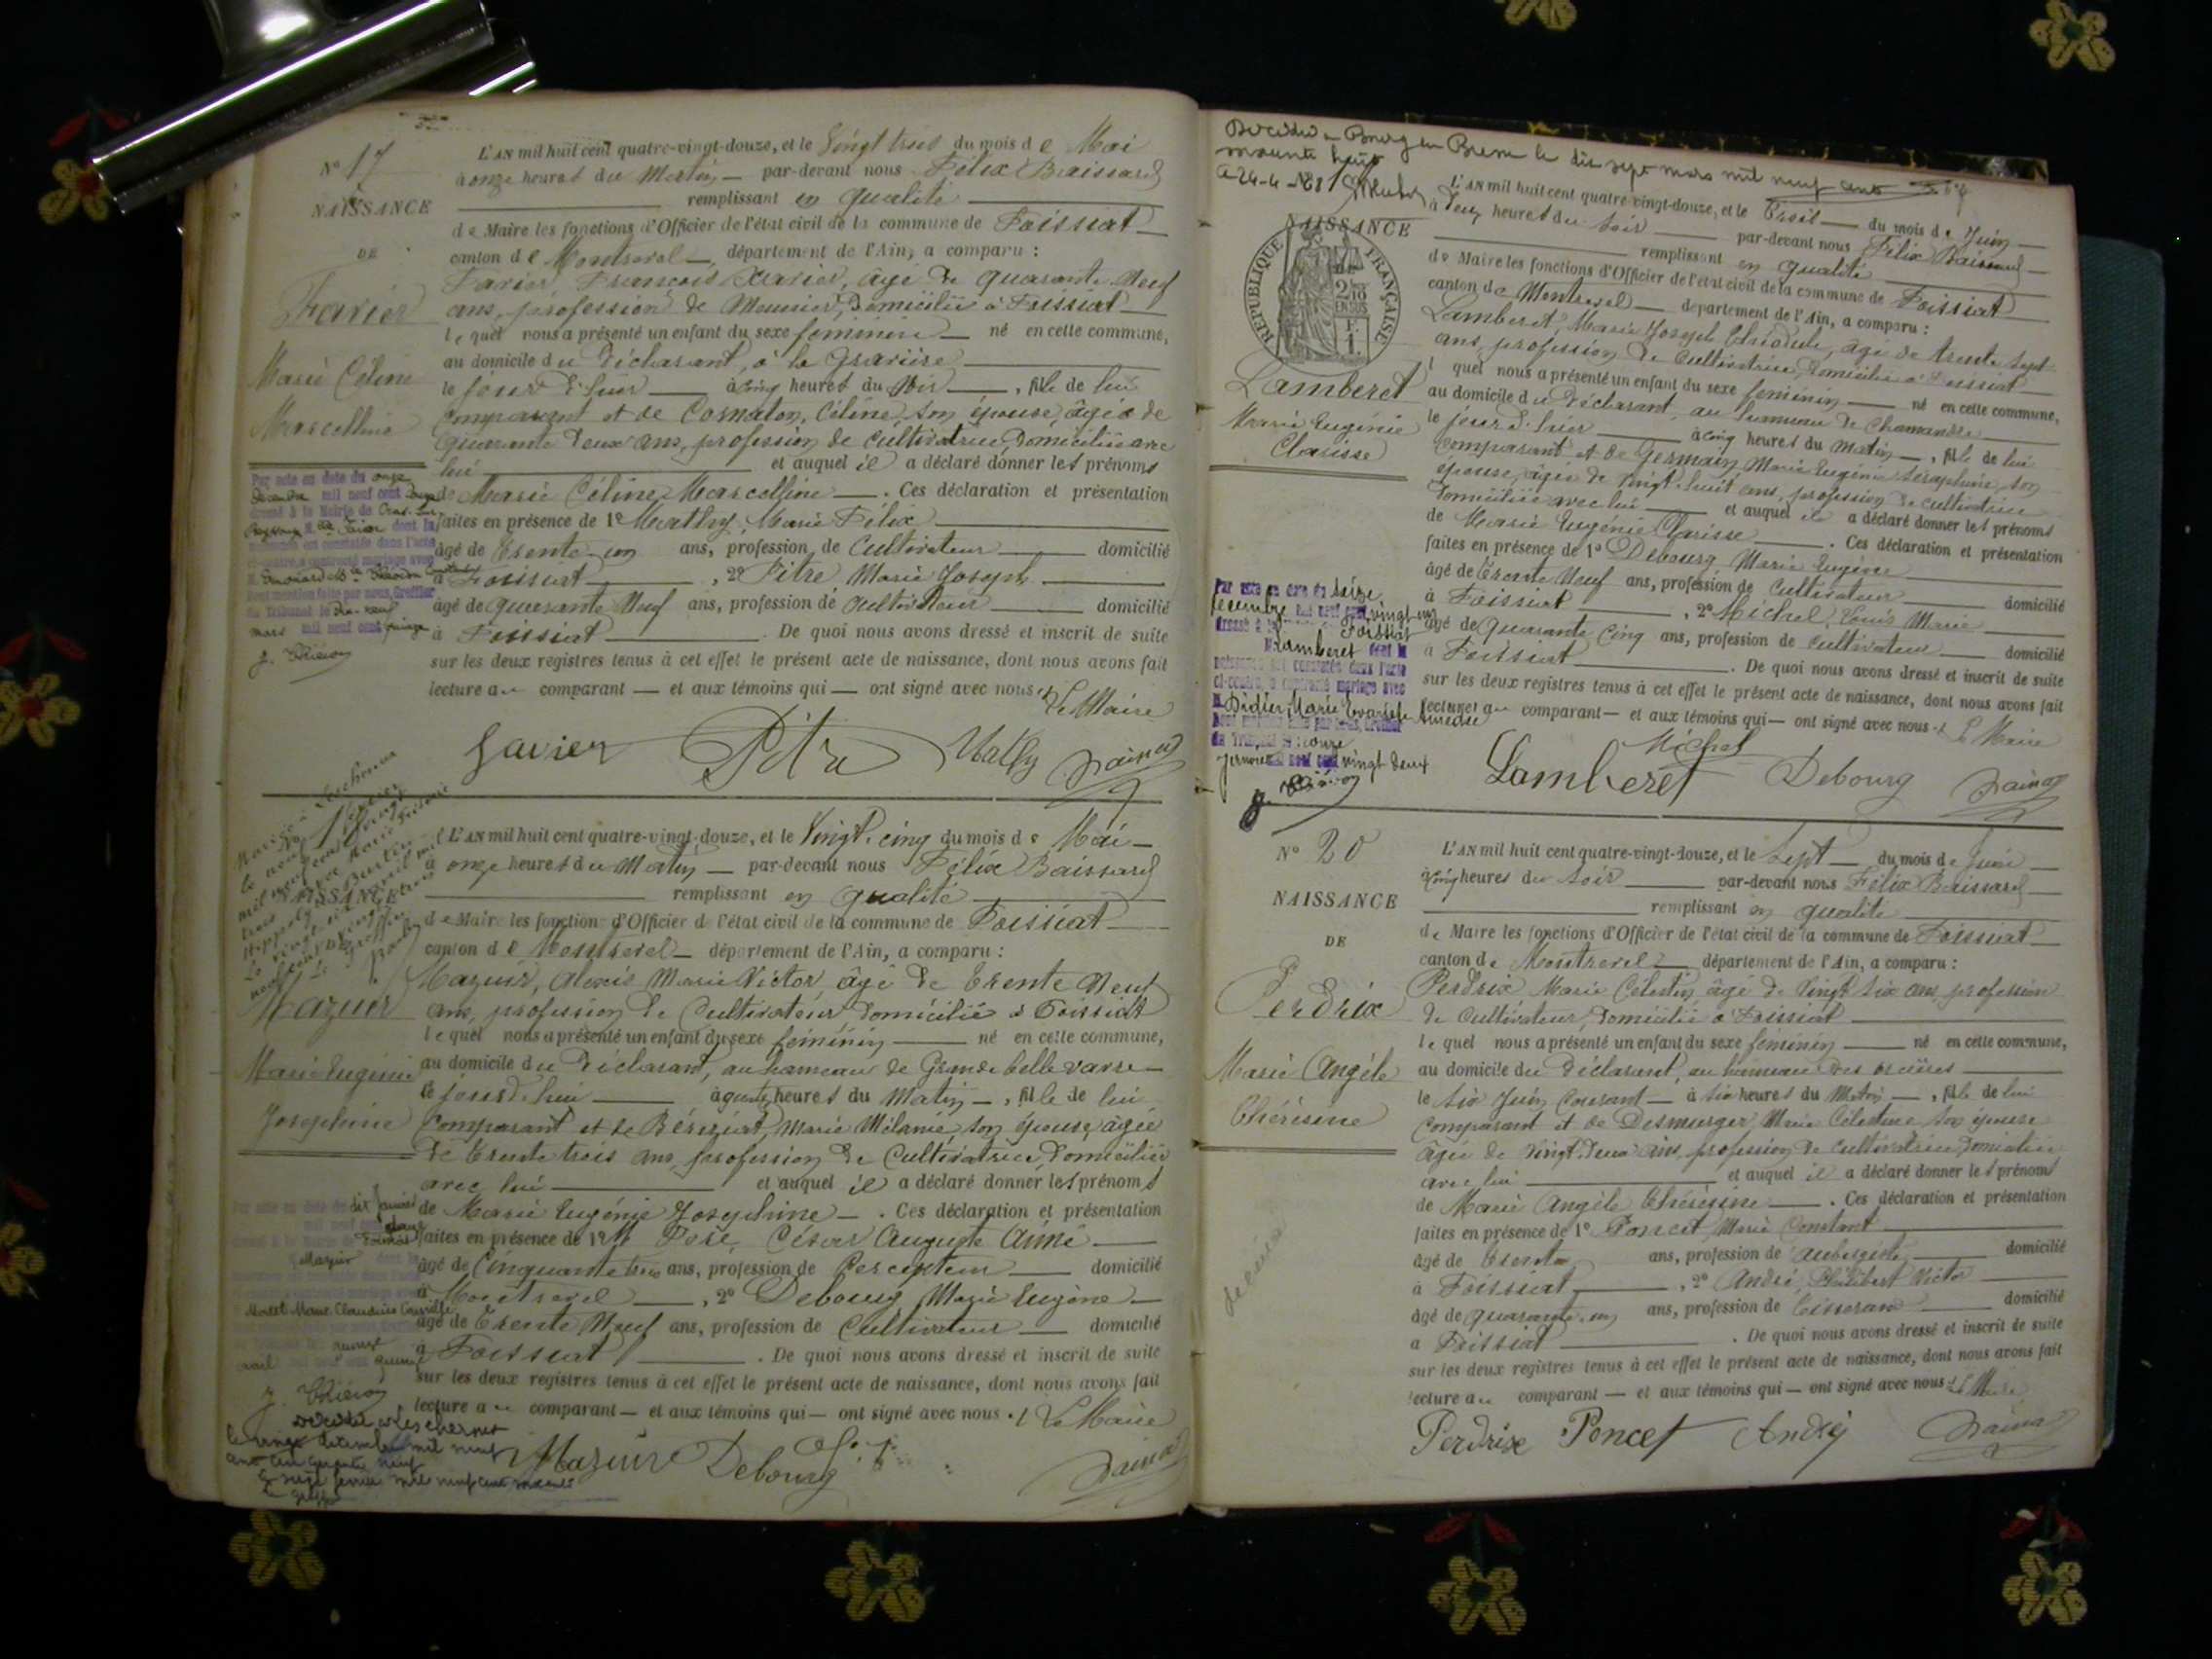 N° 17
NAISSANCE
DE
Favier
Marie Céline
Marcelline
L'AN mil huit cent quatre-vingt-douze, et le Vingt trois du mois de Mai
à onze heures du Matin — par-devant nous Félix Baissard
remplissant en qualité
de Maire les fonctions d'Officier de l'état civil de la commune de Foissiat
canton de Montrevel, département de l'Ain, a comparu :
Favier François Xavier, âgé de quarante Neuf
ans, profession de Meunier, Domicilié à Foissiat
lequel nous a présenté un enfant du sexe féminin — né en cette commune,
au domicile du Déclarant, à la Gravière
le jour d'hier à cinq heures du soir —, fille de lui
Comparant et de Cornaton, Céline, son épouse, âgée de
Quarante Deux ans, profession de cultivatrice, Domiciliée avec
lui et auquel il a déclaré donner les prénoms
de Marie Céline Marcelline —. Ces déclaration et présentation
faites en présence de 1° Mathy, Marie Félix
âgé de trente-un ans, profession de Cultivateur domicilié
à Foissiat, 2° Pitre Marie Joseph
âgé de quarante Neuf ans, profession de cultivateur domicilié
à Foissiat. De quoi nous avons dressé et inscrit de suite
sur les deux registres tenus à cet effet le présent acte de naissance, dont nous avons fait
lecture au comparant — et aux témoins qui — ont signé avec nous. Le Maire
Par acte en date du onze
décembre mil neuf cent douze
dressé à la Mairie de Cras-sur-
Reyssouze
mars mil neuf cent
J. Thiéron
Favier Pitre Mathy
NAISSANCE
Mazuir
Marie Eugénie
Joséphine
L'AN mil huit cent quatre-vingt-douze, et le Vingt-cinq du mois de Mai —
à onze heures du Matin — par-devant nous Félix Baissard
remplissant en qualité
de Maire les fonctions d'Officier de l'état civil de la commune de Foissiat
canton de Montrevel — département de l'Ain, a comparu :
Mazuir, Alexis Marie Victor, âgé de trente Neuf
ans, profession de Cultivateur Domicilié à Foissiat
lequel nous a présenté un enfant du sexe féminin — né en cette commune,
au domicile du Déclarant, au hameau de Grande belle varre —
le jour d'hui à quatre heures du Matin —, fille de lui
Comparant et de Béréziat, Marie Mélanie, son épouse, âgée
de trente trois ans, profession de Cultivatrice, Domiciliée
avec lui et auquel il a déclaré donner les prénoms
de Marie Eugénie Joséphine —. Ces déclaration et présentation
faites en présence de 1° César Auguste Aimé
âgé de Cinquante trois ans, profession de Percepteur domicilié
à Montrevel —, 2° Debourg, Marie Eugène —
âgé de trente Neuf ans, profession de Cultivateur domicilié
à Foissiat. De quoi nous avons dressé et inscrit de suite
sur les deux registres tenus à cet effet le présent acte de naissance, dont nous avons fait
lecture au comparant — et aux témoins qui — ont signé avec nous. Le Maire
J. Thiéron
Décédée à Lescheroux
le vingt décembre mil neuf
cent cinquante neuf
Mazuir Debourg
Décédée à Bourg en Bresse le dix sept mars mil neuf cent
soixante huit
NAISSANCE
REPUBLIQUE FRANÇAISE
Lamberet
Marie Eugénie
Clarisse
L'AN mil huit cent quatre-vingt-douze, et le trois du mois de Juin
à Deux heures du soir par-devant nous Félix Baissard
remplissant en qualité
de Maire les fonctions d'Officier de l'état civil de la commune de Foissiat
canton de Montrevel — département de l'Ain, a comparu :
Lamberet, Marie Joseph Théodule, âgé de trente sept
ans, profession de Cultivateur, Domicilié à Foissiat
lequel nous a présenté un enfant du sexe féminin né en cette commune,
au domicile du Déclarant, au hameau de Chamandre
le jour d'hier à cinq heures du matin —, fille de lui
comparant et de Germain, Marie Eugénie Séraphine, son
épouse, âgée de vingt-huit ans, profession de cultivatrice
Domiciliée avec lui et auquel il a déclaré donner les prénoms
de Marie Eugénie Clarisse. Ces déclaration et présentation
faites en présence de 1° Debourg Marie Eugène
âgé de trente Neuf ans, profession de Cultivateur domicilié
à Foissiat, 2° Michel, Louis Marie
âgé de quarante cinq ans, profession de cultivateur domicilié
à Foissiat. De quoi nous avons dressé et inscrit de suite
sur les deux registres tenus à cet effet le présent acte de naissance, dont nous avons fait
lecture au comparant — et aux témoins qui — ont signé avec nous. Le Maire
Par acte en date du seize
décembre mil neuf cent vingt-un
dressé à Foissiat
Lamberet dont la
naissance est constatée dans l'acte
ci-contre, a contracté mariage avec
Didier, Marie
janvier mil neuf cent vingt deux
Michel
Lamberet Debourg
N° 20
NAISSANCE
DE
Perdrix
Marie Angèle
Thérésine
L'AN mil huit cent quatre-vingt-douze, et le Sept — du mois de Juin
à cinq heures du soir par-devant nous Félix Baissard
remplissant en qualité
de Maire les fonctions d'Officier de l'état civil de la commune de Foissiat
canton de Montrevel département de l'Ain, a comparu :
Perdrix Marie Célestin, âgé de Vingt six ans profession
de Cultivateur, Domicilié à Foissiat
lequel nous a présenté un enfant du sexe féminin né en cette commune,
au domicile du Déclarant, au hameau des
le six Juin Courant — à six heures du Matin —, fille de lui
Comparant et de Desmurger Marie Célestine son épouse
âgée de vingt Deux ans, profession de cultivatrice, Domiciliée
avec lui et auquel il a déclaré donner les prénoms
de Marie Angèle Thérésine —. Ces déclaration et présentation
faites en présence de 1° Poncet, Marie Constant
âgé de trente ans, profession de aubergiste domicilié
à Foissiat, 2° André, Philibert Victor
âgé de quarante-un ans, profession de tisserand domicilié
à Foissiat. De quoi nous avons dressé et inscrit de suite
sur les deux registres tenus à cet effet le présent acte de naissance, dont nous avons fait
lecture au comparant — et aux témoins qui — ont signé avec nous. Le Maire
Perdrix Poncet André